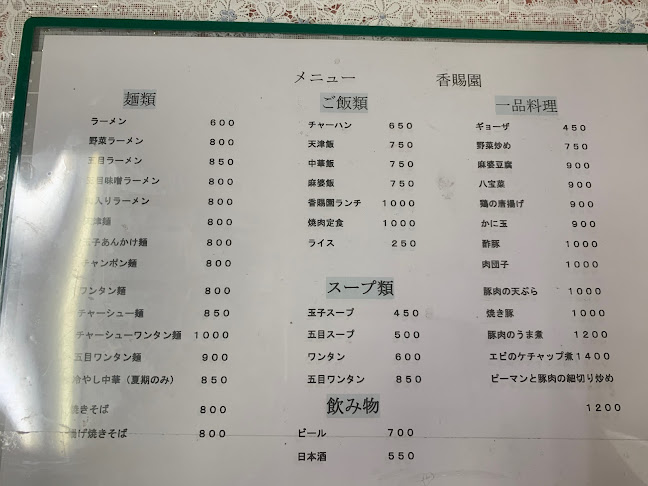 メニュー 香賜園
麺類
ラーメン 600
野菜ラーメン 800
五目ラーメン 850
目味噌ラーメン 800
入りラーメン 800
麺 800
玉子あんかけ麺 800
チャンポン麺 800
ワンタン麺 800
チャーシュー麺 850
チャーシューワンタン麺 1000
五目ワンタン麺 900
冷やし中華（夏期のみ） 850
焼きそば 800
揚げ焼きそば 800
ご飯類
チャーハン 650
天津飯 750
中華飯 750
麻婆飯 750
香賜園ランチ 1000
焼肉定食 1000
ライス 250
スープ類
玉子スープ 450
五目スープ 500
ワンタン 600
五目ワンタン 850
飲み物
ビール 700
日本酒 550
一品料理
ギョーザ 450
野菜炒め 750
麻婆豆腐 900
八宝菜 900
鶏の唐揚げ 900
かに玉 900
酢豚 1000
肉団子 1000
豚肉の天ぷら 1000
焼き豚 1000
豚肉のうま煮 1200
エビのケチャップ煮 1400
ピーマンと豚肉の細切り炒め
1200